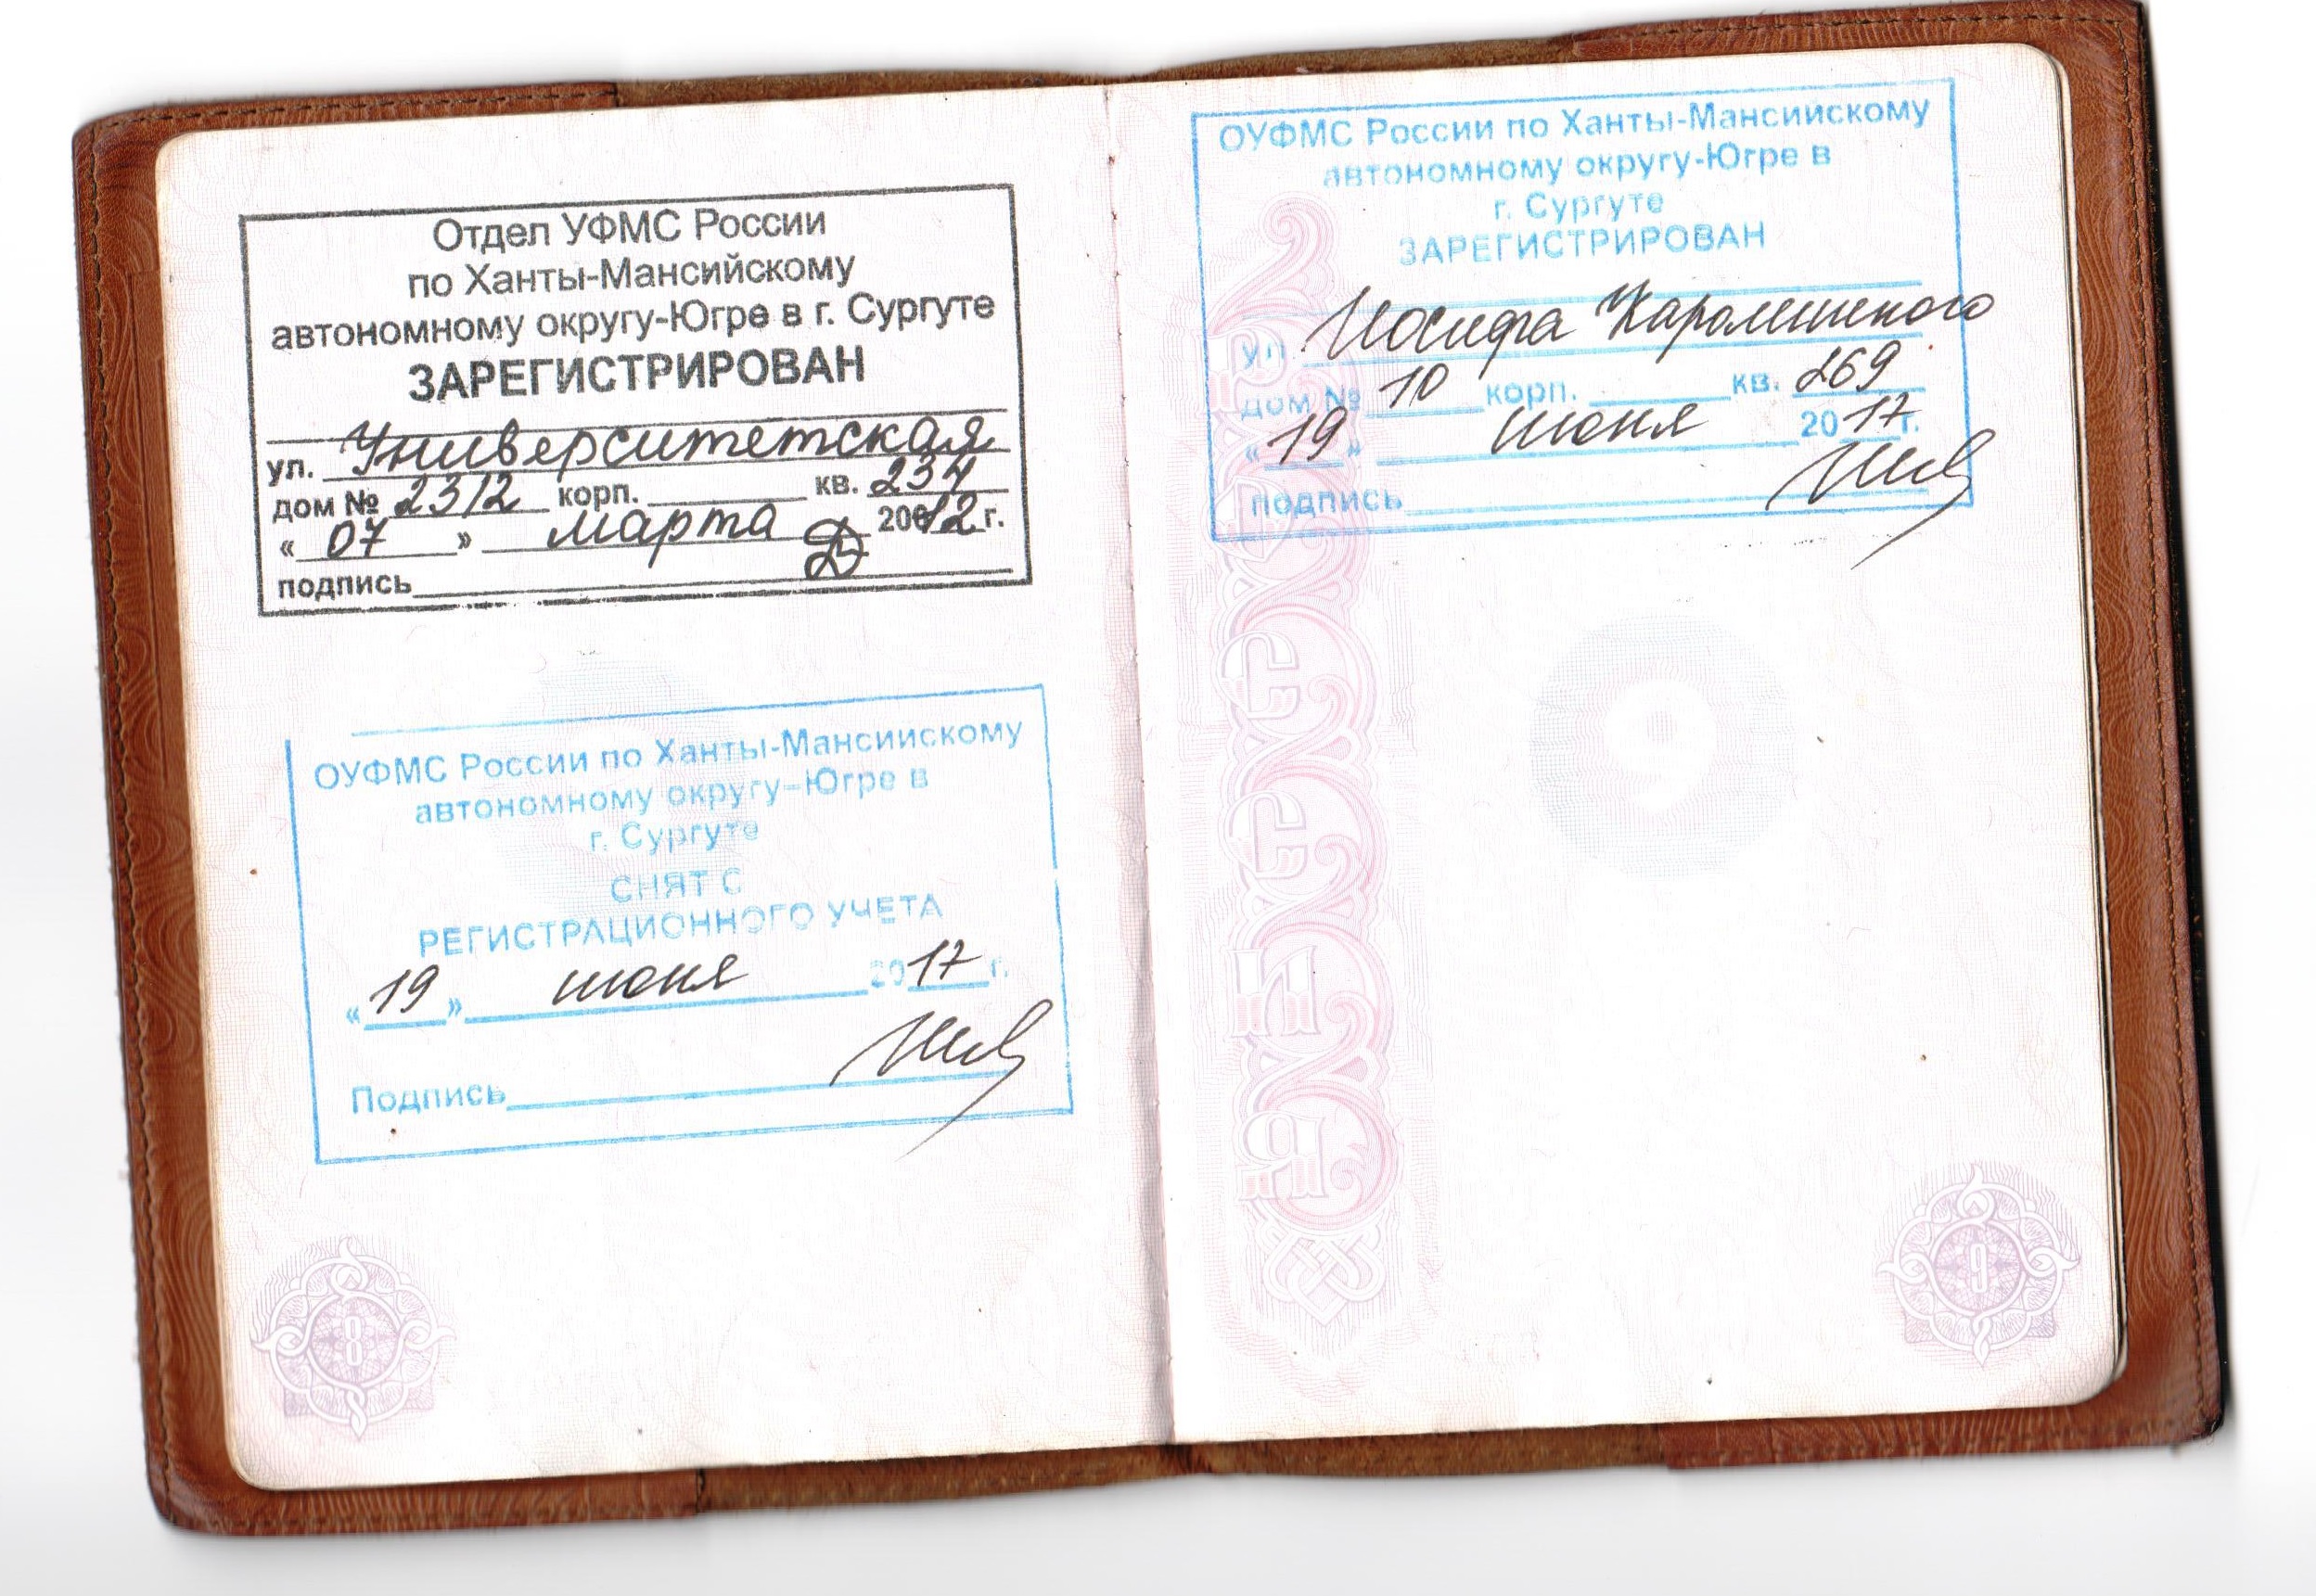 Отдел УФМС России
по Ханты-Мансийскому
автономному округу-Югре в г. Сургуте
ЗАРЕГИСТРИРОВАН
ул. Университетская
дом № 23/2 корп. кв. 234
« 07 » марта 20012 г.
подпись
ОУФМС России по Ханты-Мансийскому
автономному округу-Югре в
г. Сургуте
СНЯТ С
РЕГИСТРАЦИОННОГО УЧЕТА
« 19 » июня 2017 г.
Подпись
8
ОУФМС России по Ханты-Мансийскому
автономному округу-Югре в
г. Сургуте
ЗАРЕГИСТРИРОВАН
ул. Иосифа Каролинского
дом № 10 корп. кв. 269
« 19 » июня 2017 г.
подпись
9
9